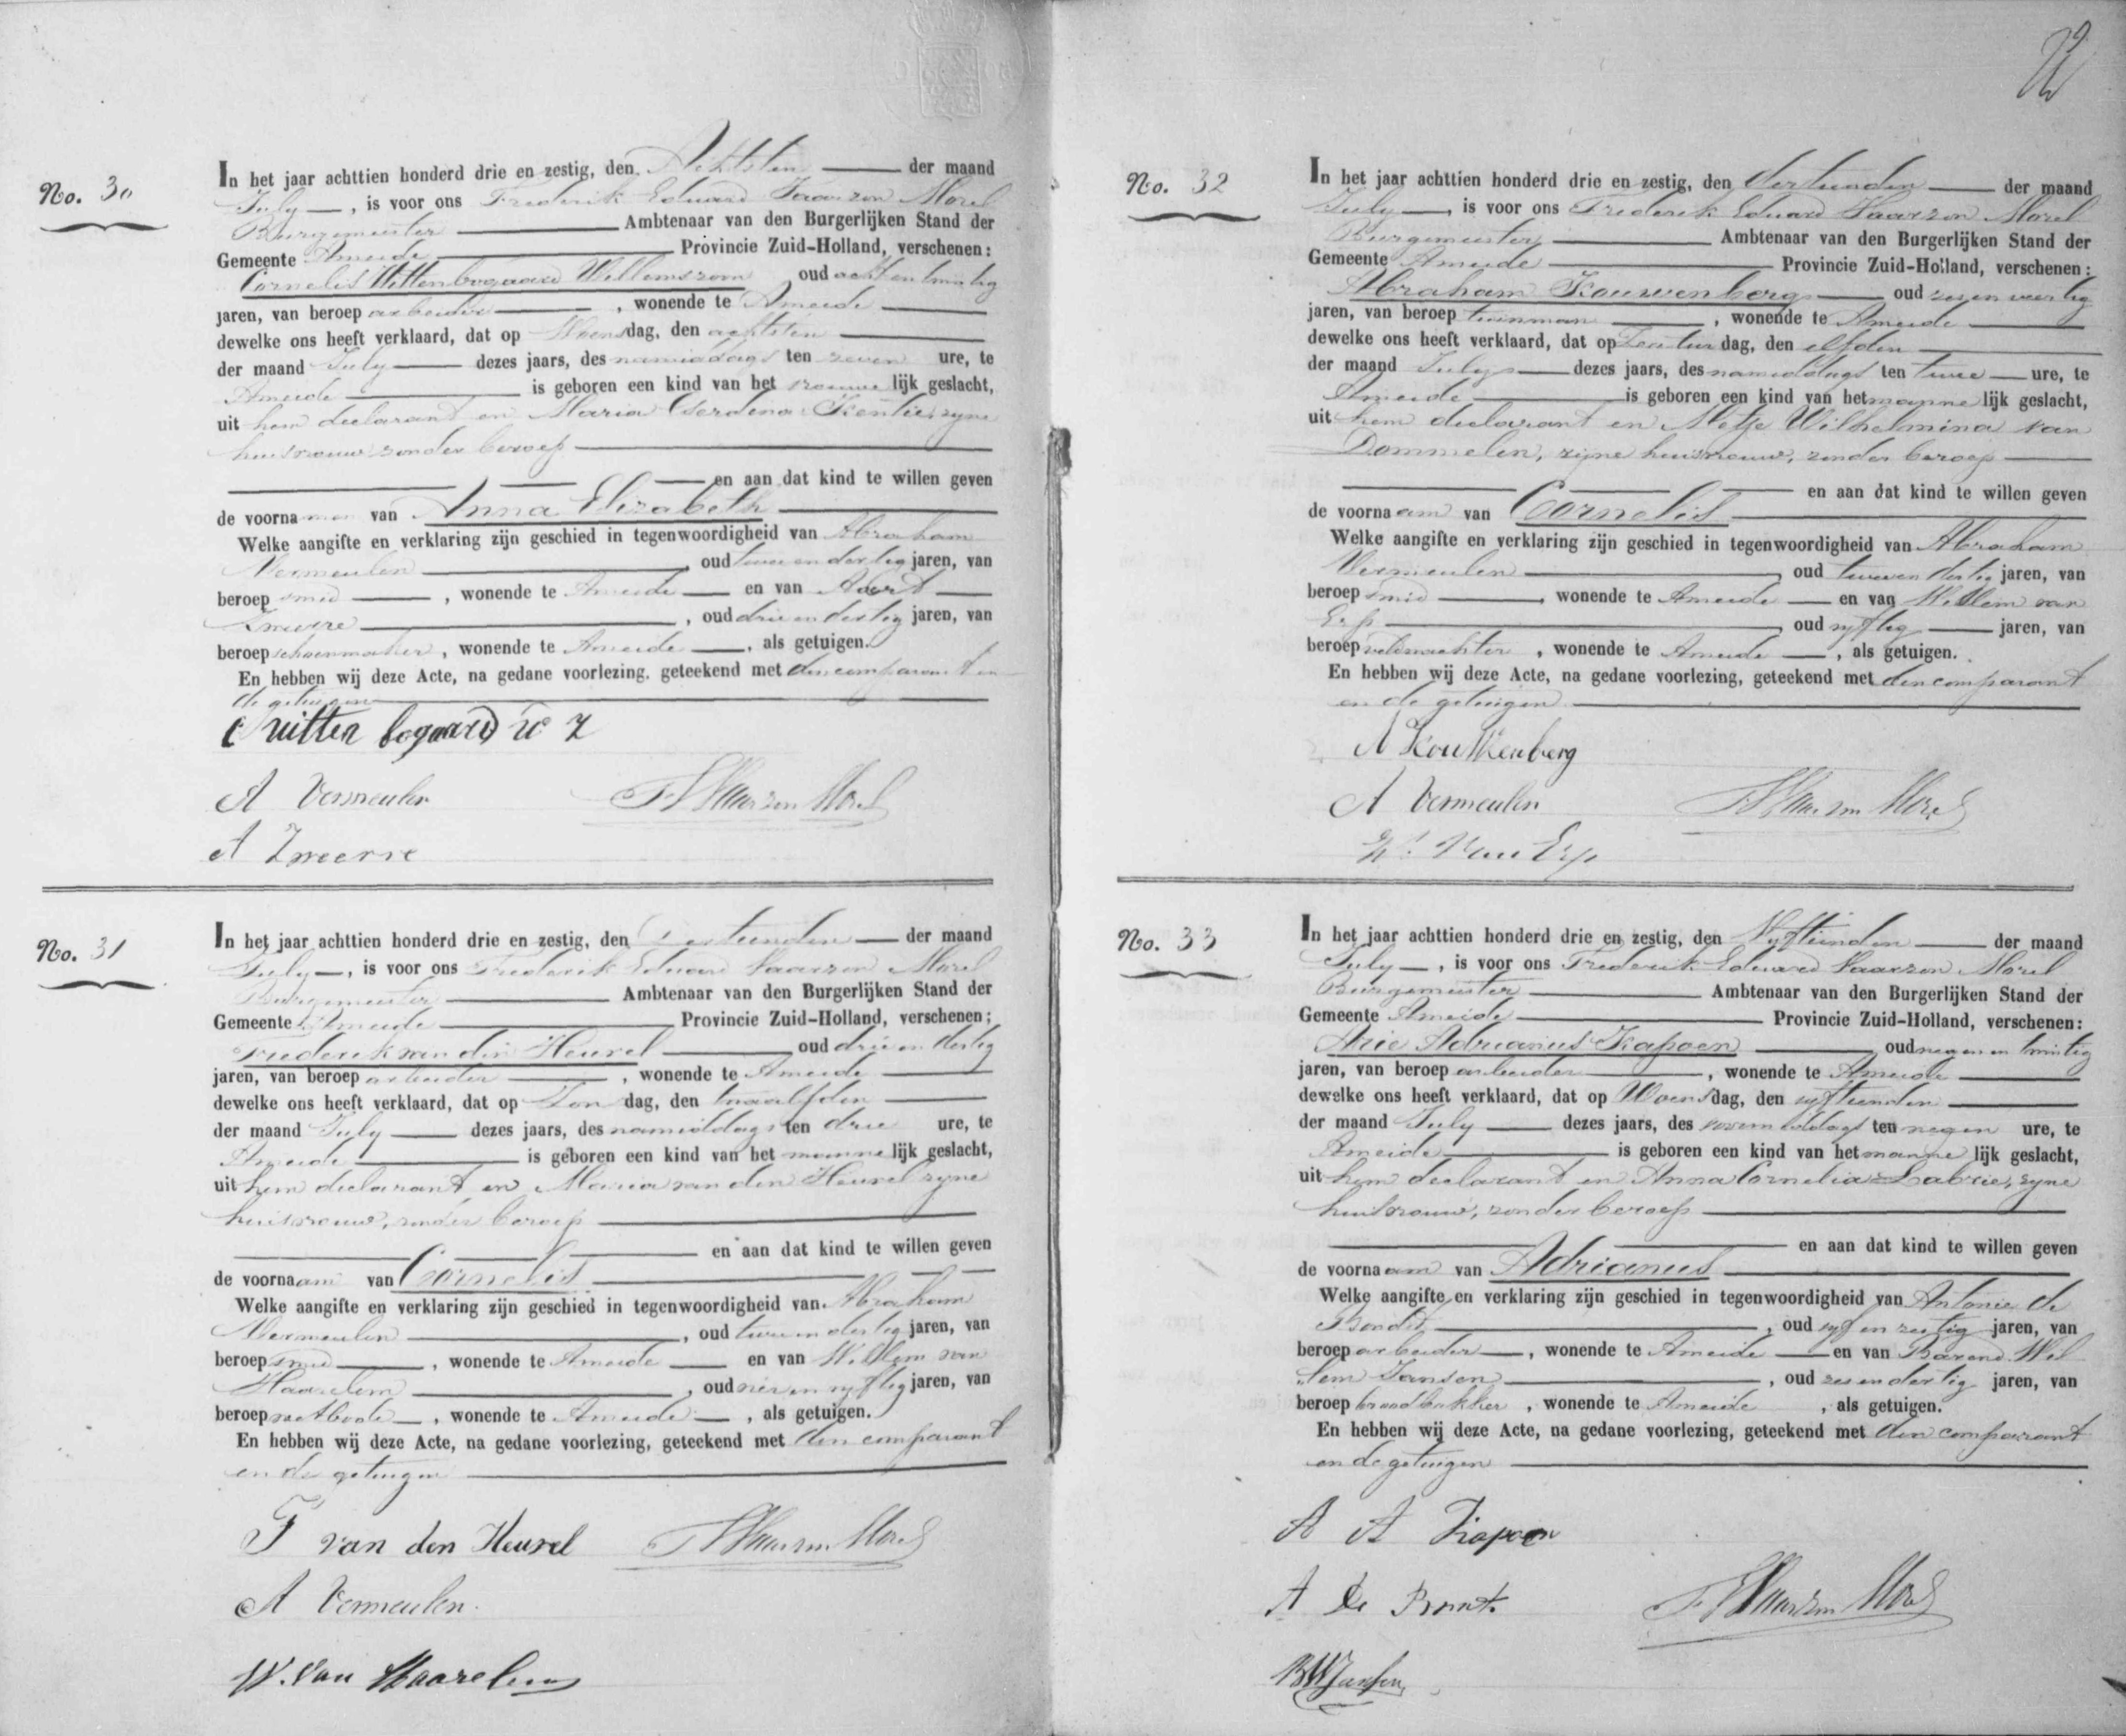 No. 30
In het jaar achttien honderd drie en zestig, den Achtsten der maand
July, is voor ons Frederik Eduard Vaarzon Morel
Burgemeester Ambtenaar van den Burgerlijken Stand der
Gemeente Ameide Provincie Zuid-Holland, verschenen:
Cornelis Uittenbogaard Willemszoon oud acht en twintig
jaren, van beroep arbeider, wonende te Ameide
dewelke ons heeft verklaard, dat op Woensdag, den achtsten
der maand July dezes jaars, des namiddags ten zeven ure, te
Ameide is geboren een kind van het vrouwelijk geslacht,
uit hem declarant en Maria Gerdina Kentie, zyne
huisvrouw zonder beroep
en aan dat kind te willen geven
de voornamen van Anna Elizabeth
Welke aangifte en verklaring zijn geschied in tegenwoordigheid van Abraham
Vermeulen, oud twee en dertig jaren, van
beroep smid, wonende te Ameide en van Aart
Zweere, oud drie en dertig jaren, van
beroep schoenmaker, wonende te Ameide, als getuigen.
En hebben wij deze Acte, na gedane voorlezing, geteekend met den comparant en
de getuigen
C uitten bogaard W Z
A Vermeulen FE Vaarzon Morel
A Zweere
No. 31
In het jaar achttien honderd drie en zestig, den Dertienden der maand
July, is voor ons Frederik Eduard Vaarzon Morel
Burgemeester Ambtenaar van den Burgerlijken Stand der
Gemeente Ameide Provincie Zuid-Holland, verschenen:
Frederik van den Heuvel oud drie en dertig
jaren, van beroep arbeider, wonende te Ameide
dewelke ons heeft verklaard, dat op Zondag, den twaalfden
der maand July dezes jaars, des namiddags ten drie ure, te
Ameide is geboren een kind van het mannelijk geslacht,
uit hem declarant en Maria van den Heuvel zyne
huisvrouw, zonder beroep
en aan dat kind te willen geven
de voornaam van Cornelis
Welke aangifte en verklaring zijn geschied in tegenwoordigheid van Abraham
Vermeulen, oud twee en dertig jaren, van
beroep smid, wonende te Ameide en van Willem van
Haarelem, oud vier en vyftig jaren, van
beroep veldbode, wonende te Ameide, als getuigen.
En hebben wij deze Acte, na gedane voorlezing, geteekend met den comparant
en de getuigen
F van den Heuvel FE Vaarzon Morel
A Vermeulen.
W. Van Haarelem
No. 32
In het jaar achttien honderd drie en zestig, den dertienden der maand
July, is voor ons Frederik Eduard Vaarzon Morel
Burgemeester Ambtenaar van den Burgerlijken Stand der
Gemeente Ameide Provincie Zuid-Holland, verschenen:
Abraham Kouwenberg oud zes en veertig
jaren, van beroep tuinman, wonende te Ameide
dewelke ons heeft verklaard, dat op Zaturdag, den elfden
der maand July dezes jaars, des namiddags ten twee ure, te
Ameide is geboren een kind van het mannelijk geslacht,
uit hem declarant en Metje Wilhelmina van
Dommelen, zyne huisvrouw, zonder beroep
en aan dat kind te willen geven
de voornaam van Cornelis
Welke aangifte en verklaring zijn geschied in tegenwoordigheid van Abraham
Vermeulen, oud twee en dertig jaren, van
beroep smid, wonende te Ameide en van Willem van
Erp, oud vyftig jaren, van
beroep veldwachter, wonende te Ameide, als getuigen.
En hebben wij deze Acte, na gedane voorlezing, geteekend met den comparant
en de getuigen
A Kouwenberg
A Vermeulen FE Vaarzon Morel
W. Van Erp
No. 33
In het jaar achttien honderd drie en zestig, den Vyftienden der maand
July, is voor ons Frederik Eduard Vaarzon Morel
Burgemeester Ambtenaar van den Burgerlijken Stand der
Gemeente Ameide Provincie Zuid-Holland, verschenen:
Arie Adrianus Kapoen oud negen en twintig
jaren, van beroep arbeider, wonende te Ameide
dewelke ons heeft verklaard, dat op Woensdag, den vyftienden
der maand July dezes jaars, des voormiddags ten negen ure, te
Ameide is geboren een kind van het mannelijk geslacht,
uit hem declarant en Anna Cornelia Labrie, zyne
huisvrouw, zonder beroep
en aan dat kind te willen geven
de voornaam van Adrianus
Welke aangifte en verklaring zijn geschied in tegenwoordigheid van Antonie de
oud vyf en zestig jaren, van
beroep arbeider, wonende te Ameide en van Barend Wil
lem Jansen, oud zes en dertig jaren, van
beroep broodbakker, wonende te Ameide, als getuigen.
En hebben wij deze Acte, na gedane voorlezing, geteekend met den comparant
en de getuigen
A A Kapoen
A de FE Vaarzon Morel
BWJansen